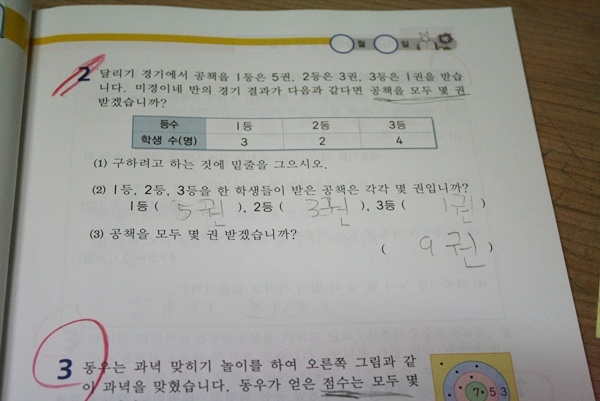 월 일
2 달리기 경기에서 공책을 1등은 5권, 2등은 3권, 3등은 1권을 받습
니다. 미경이네 반의 경기 결과가 다음과 같다면 공책을 모두 몇 권
받겠습니까?
등수 1등 2등 3등
학생 수(명) 3 2 4
(1) 구하려고 하는 것에 밑줄을 그으시오.
(2) 1등, 2등, 3등을 한 학생들이 받은 공책은 각각 몇 권입니까?
1등 ( 5권 ), 2등 ( 3권 ), 3등 ( 1권 )
(3) 공책을 모두 몇 권 받겠습니까?
( 9권 )
3 동우는 과녁 맞히기 놀이를 하여 오른쪽 그림과 같
이 과녁을 맞혔습니다. 동우가 얻은 점수는 모두 몇
7 5 3